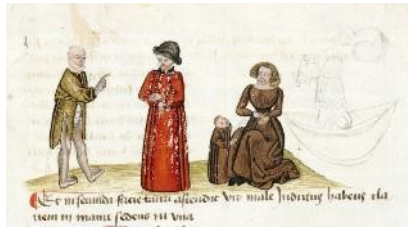 Et in secunda facie tauri ascendit vir male Indutus habens cla
uem in manu sedens in vna